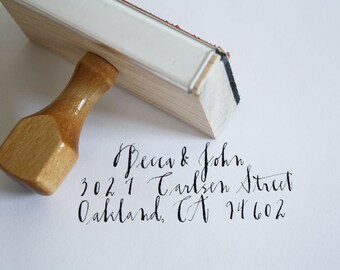 Becca & John
3027 Carlsen Street
Oakland, CA 94602